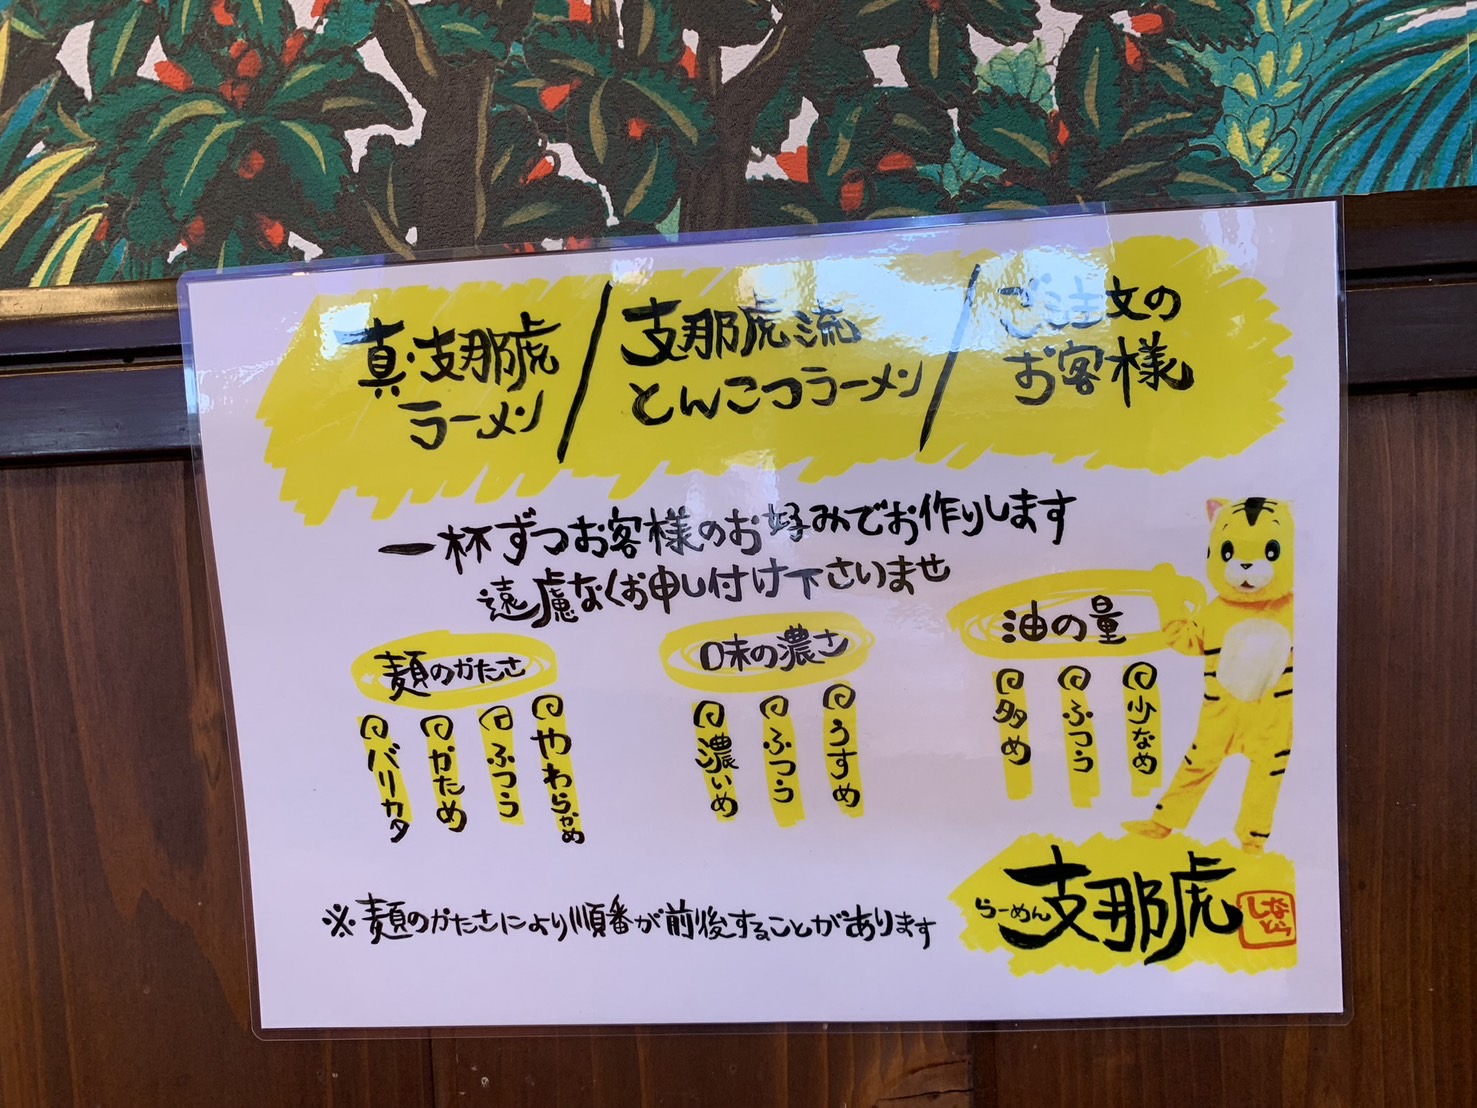 真・支那虎
ラーメン
/
支那虎流
とんこつラーメン
/
ご注文の
お客様
一杯ずつお客様のお好みでお作りします
遠慮なくお申し付け下さいませ
麺のかたさ
バリカタ
かため
ふつう
やわらかめ
味の濃さ
濃いめ
ふつう
うすめ
油の量
多め
ふつう
少なめ
※麺のかたさにより順番が前後することがあります
らーめん
支那虎
しなとら